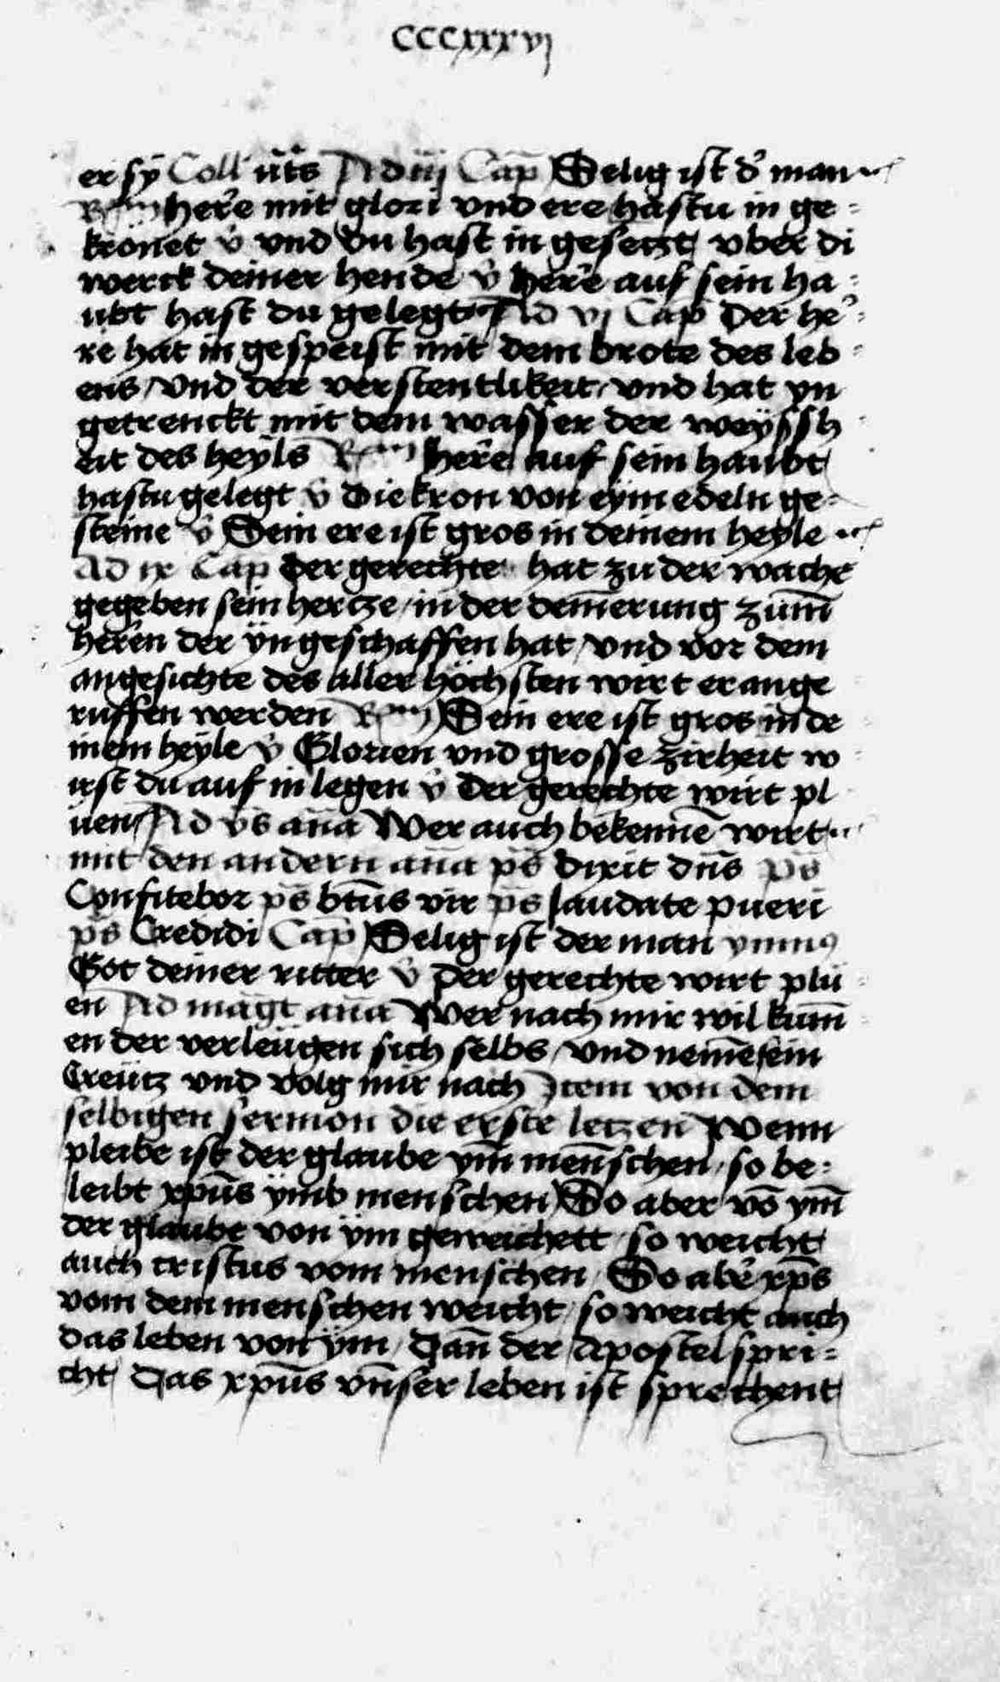 CCCxxxvj
er sÿ Coll ūts Ad iij Cap̄ Selig ist d̓ man
Rm̄ here mit glori vnd ere hastu in ge-
krönet v̄ vnd du hast in gesetzt vber di
werck deiner hende v̄ here auf sein ha-
ubt hast du gelegt Ad vj Cap̄ Der he-
re hat in gespeist mit dem brote des leb-
ens / vnd der verstentlikeit / vnd hat yn
getrenckt mit dem wasser der weÿssh
eit des heyls Rm̄ here auf sein haubt
hastu gelegt v̄ Die kron von eÿm edeln ge-
steine v̄ Sein ere ist gros in deinem heyle
Ad ix Cap̄ Der gerechte hat zu der wache
gegeben sein hertze / in der dem̄erung zum̄
heren der ÿn geschaffen hat / vnd vor dem
angesichte des aller höchsten wirt er ange
ruffen werden Rm̄ Sein ere ist gros in de
inem heyle v̄ Glorien vnd grosse zirheit w-
irst du auf in legen v̄ Der gerechte wirt pl
üen Ad vs̄ an̄a Wer auch bekenn̄e wirt
mit den andern an̄a ps̄ Dixit dn̄s ps̄
Confitebor ps̄ bt̄us vir ps̄ laudate pueri
ps̄ Credidi Cap̄ Selig ist der man ymnꝰ
Got deiner ritter v̄ Der gerechte wirt plü
en Ad mag̅t an̄a Wer nach mir wil kum̄
en der verleügen sich selbs / vnd nem̄e sein
Creütz vnd volg mir nach Item von dem
selbigen sermon die erste letzen Wenn
pleibe ist der glaube ym̄ men̄schen / so be-
leibt xp̄us ÿmb menschen So aber vō ym̄
der glaube von ÿm geweichett / so weicht
auch cristus vom menschen / So aber xp̄s
vom dem menschen weicht / so weicht auch
das leben von ym / Dan̄ der Apostel spri-
cht / Das xp̄us vn̄ser leben ist sprechent